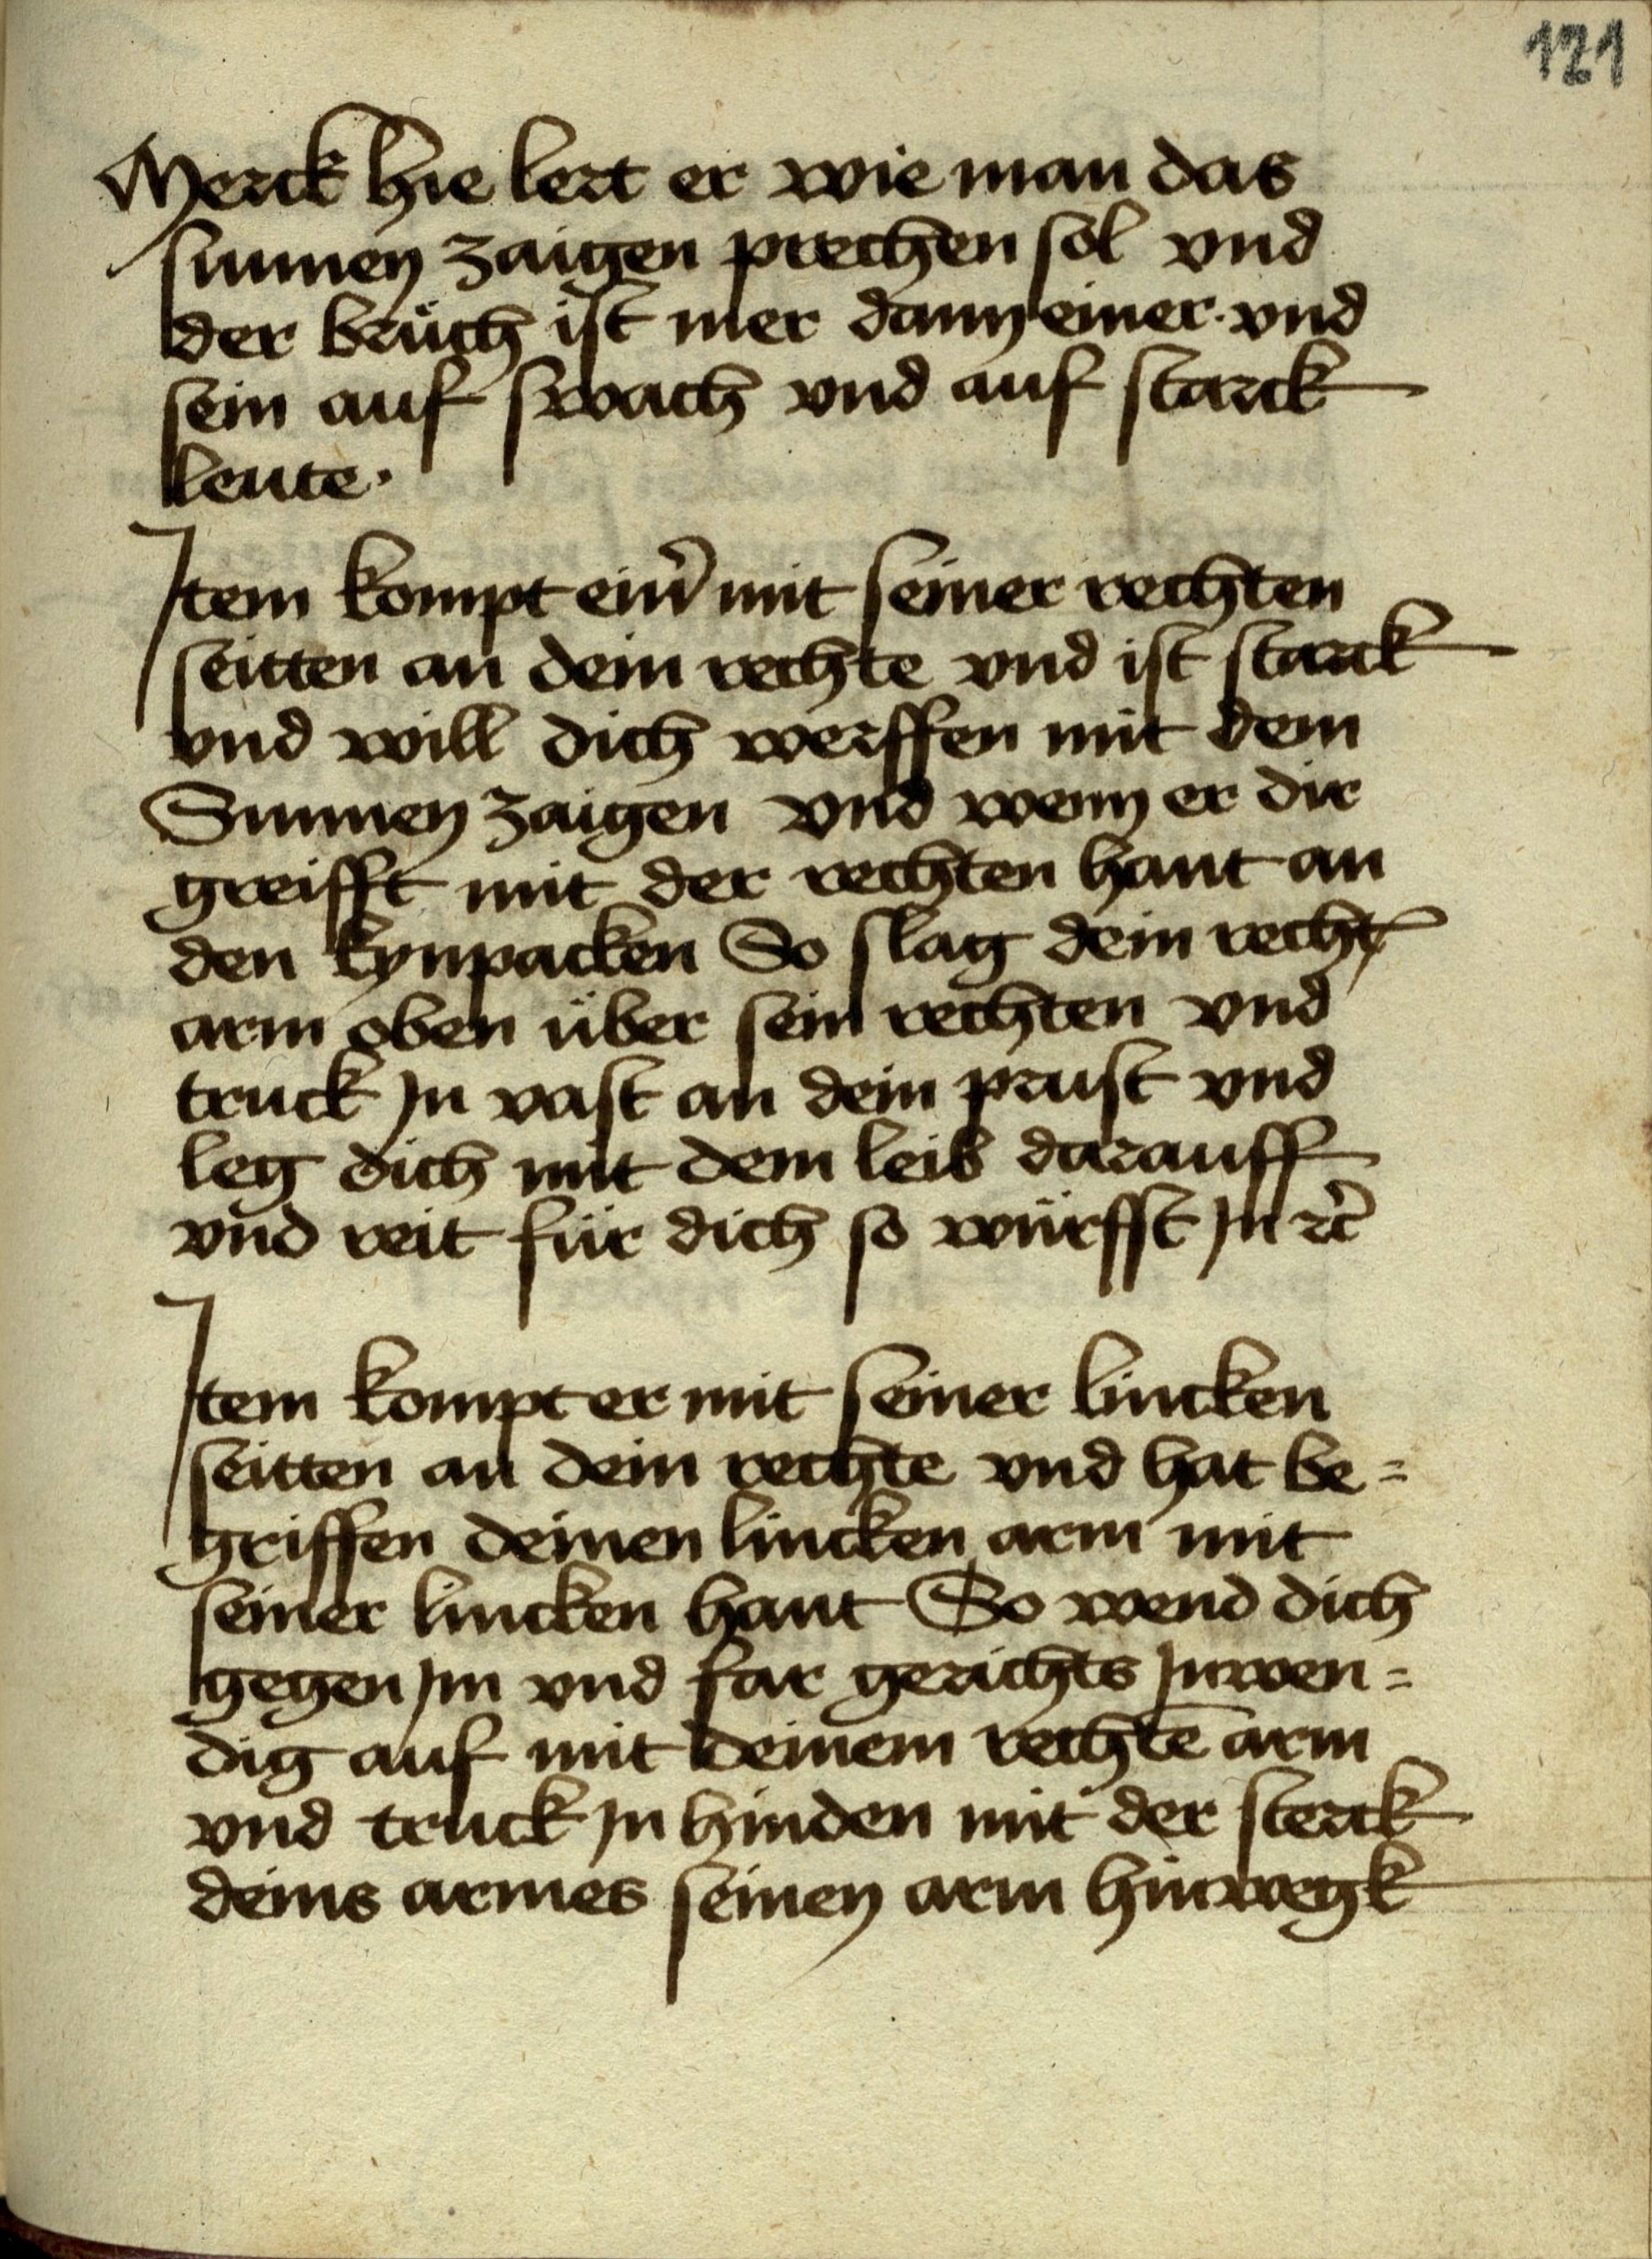 121
Merck hie lert er wie man das
sunnen zaigen prechen sol vnd
der brüch ist mer dann einer · vnd
sein auf swach vnd auf starck
leute ·
Jtem kompt ein͛ mit seiner rechten
seitten an dein rechte vnd ist starck
vnd will dich werffen mit dem
Sunnen zaigen vnd wenn er dir
greifft mit der rechten hant an
den kynpacken So slag dein recht̄
arm oben über sein rechten vnd
truck Jn vast an dein prust vnd
leg dich mit dem leib darauff
vnd reit für dich so würfst Jn ꝛc̄
Jtem kompt er mit seiner lincken
seitten an dein rechte vnd hat be=
griffen deinen lincken arm mit
seiner lincken hant So wend dich
gegen Jm vnd far gerichts Jnwen=
dig auf mit deinem rechtē arm
vnd truck Jn hinden mit der sterck
deins armes seinen arm hinwegk